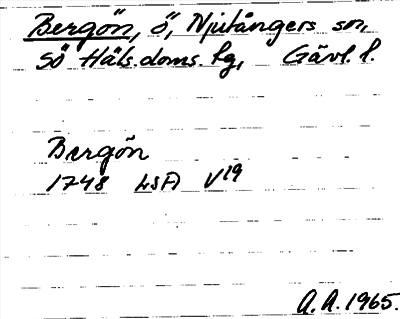 Bergön, ö, Njutångers sn,
Sö Häls. doms. tg, Gävl. l.
Bergön
1748 LSA V19
A. A. 1965.